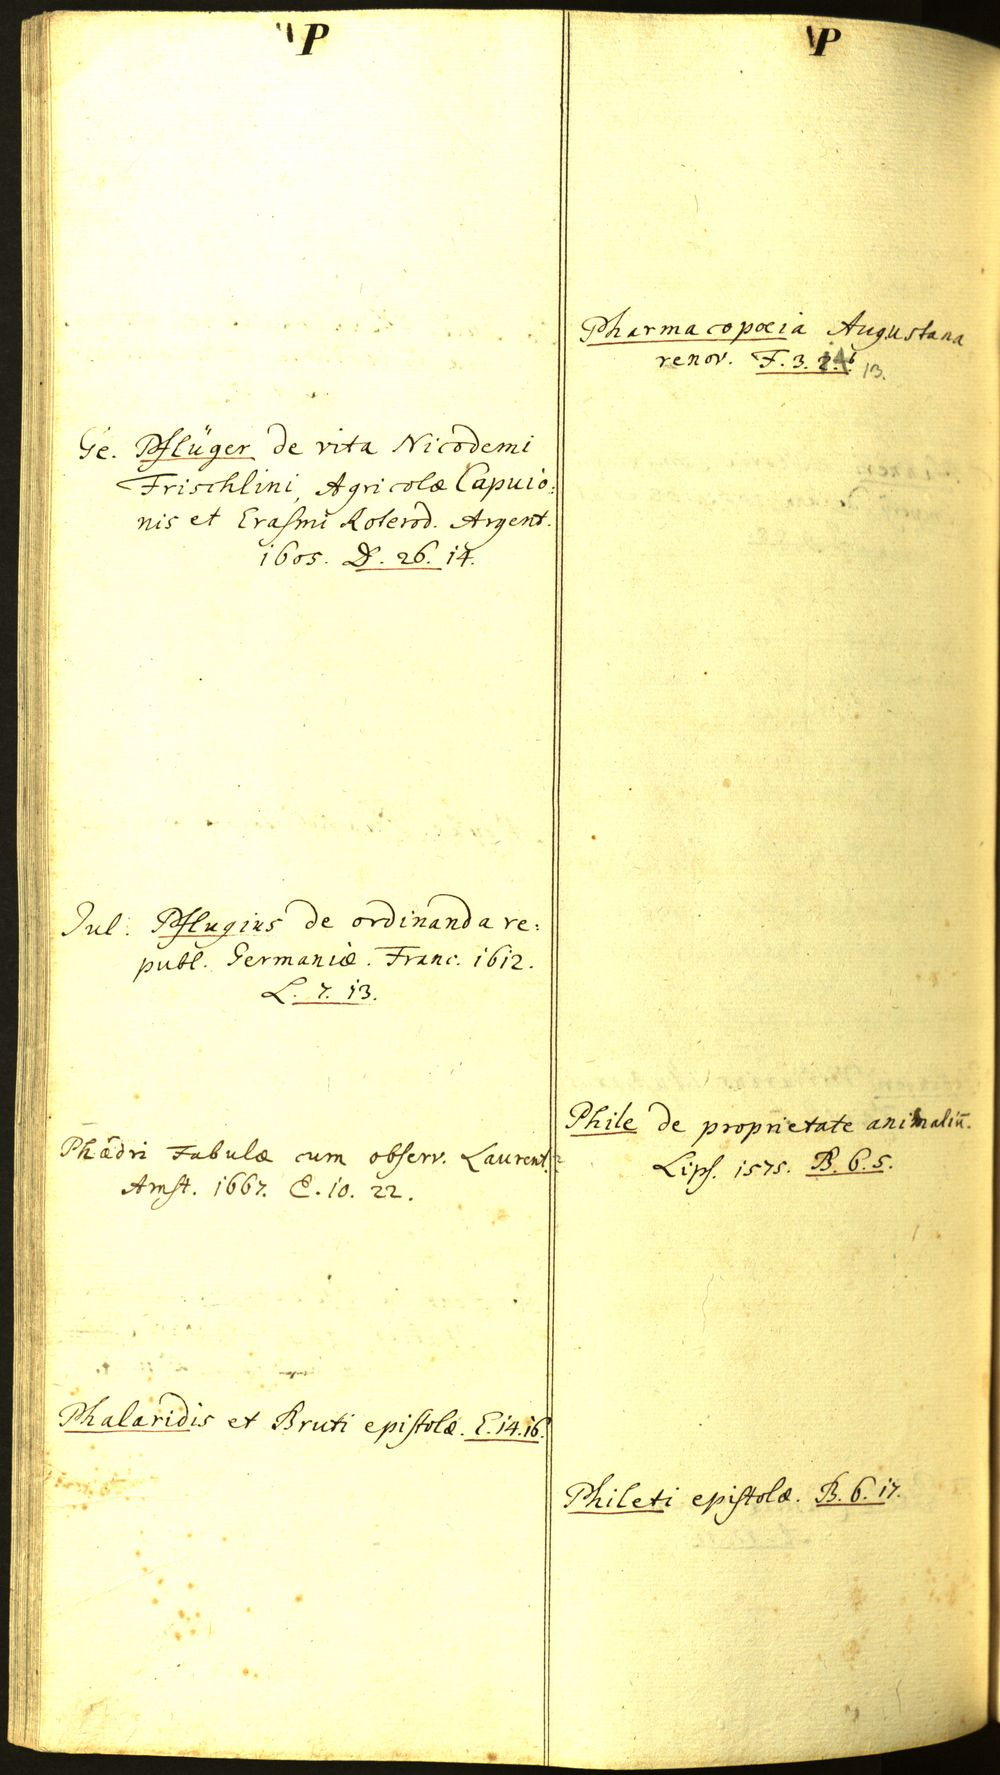 P
Ge. Pflüger de vita Nicodemi
Frischlini, Agricolæ Capuio:
nis et Erasmi Roterod. Argent.
1605. D. 26. 14.
Jul. Pflugius de ordinanda re:
publ. Germaniæ. Franc. 1612.
L. 7. 13.
Phädri Fabulæ cum observ. Laurent.
Amst. 1667. E. 10. 22.
Phalaridis et Bruti epistolæ. E. 14. 16.
P
Pharmacopœia Augustana
renov. F. 3. 13.
Phile de proprietate animaliū.
Lips. 1575. B. 6. 5.
Phileti epistolæ. B. 6. 17.